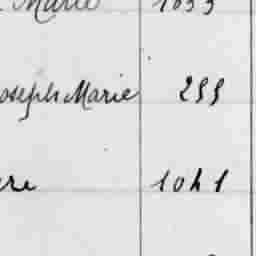 Marie 1033
oseph Marie 299
re 1041